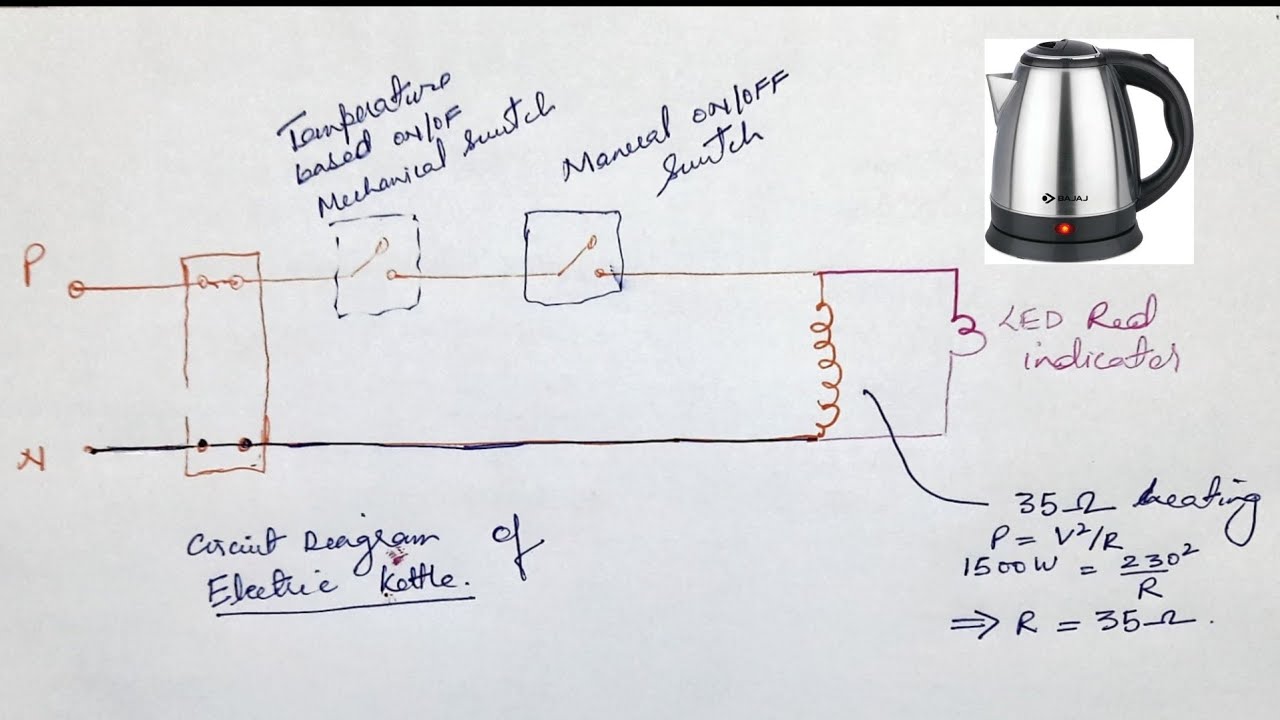 Temperature
based ON/OF
Mechanical Switch
Manual ON/OFF
Switch
P
N
LED Red
indicator
35Ω heating
P = V²/R
1500W = 230²/R
⇒ R = 35Ω.
Circuit Diagram of
Electric Kettle.
BAJAJ